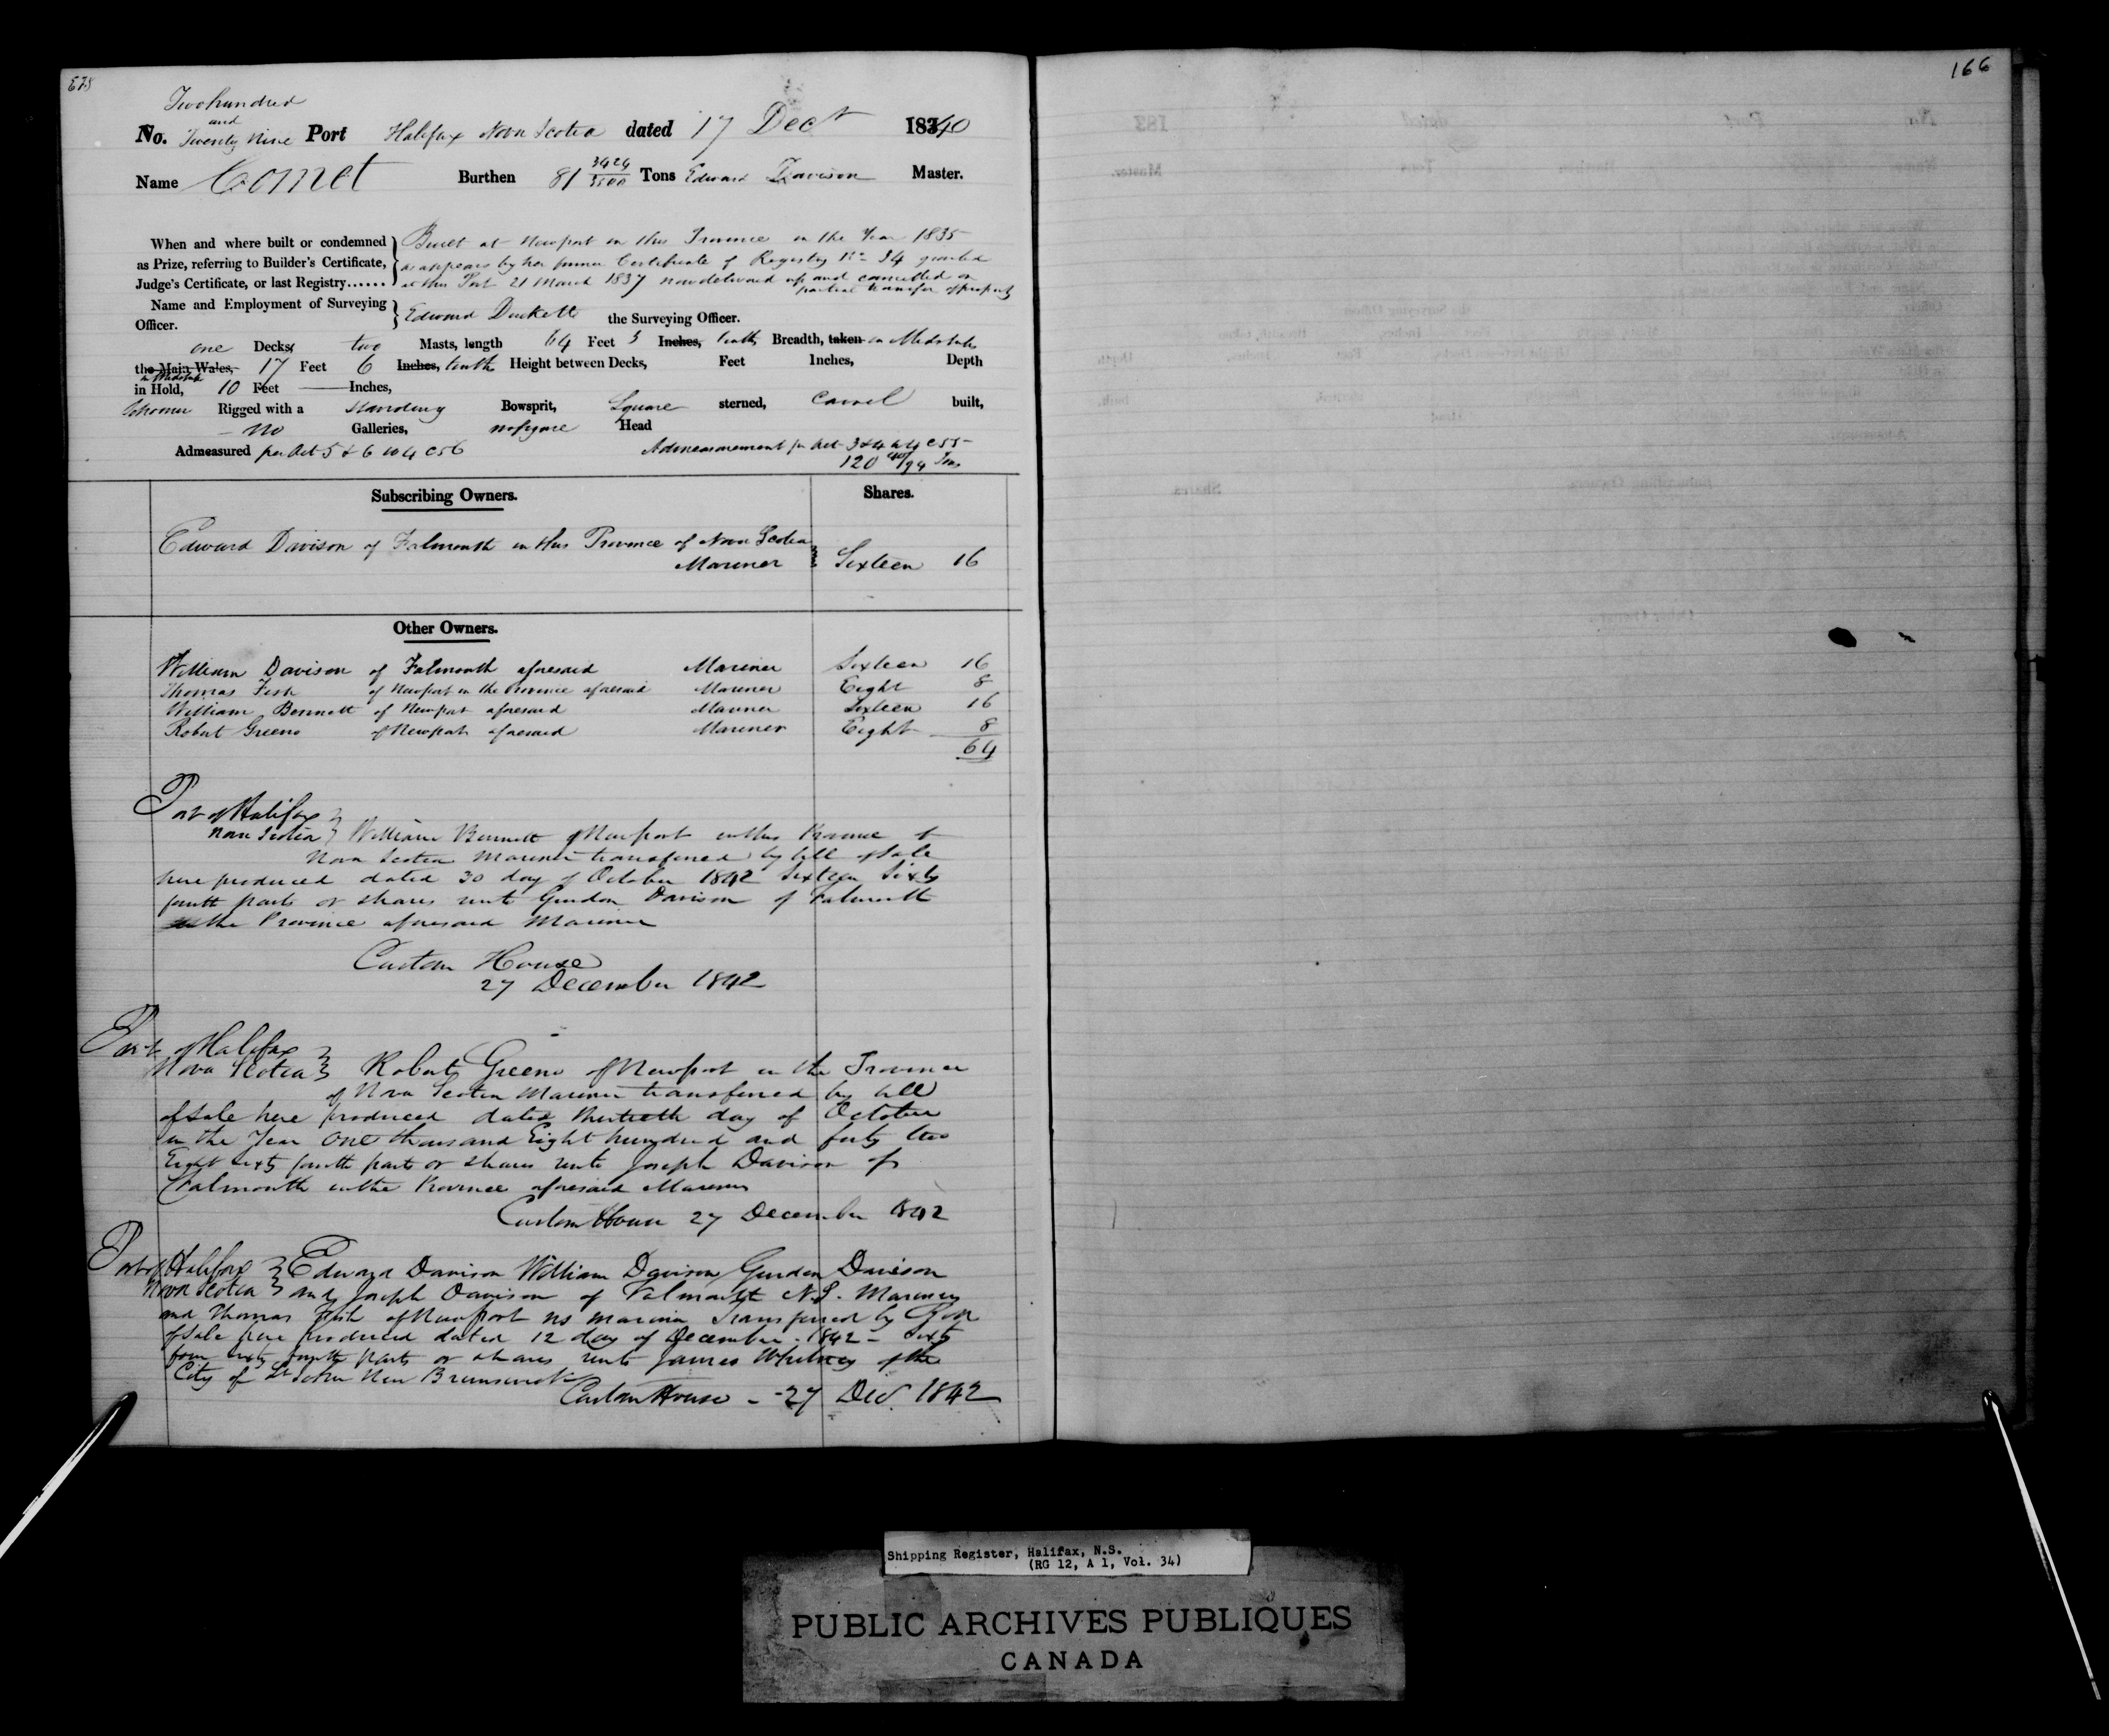 166
Two hundred
and
No. Twenty Nine Port Halifax Nova Scotia dated 17 Decr 18340
Name Comet Burthen 81 3424/3500 Tons Edward Davison Master.
When and where built or condemned as Prize, referring to Builder's Certificate, Judge's Certificate, or last Registry......
Built at Newport in this Province in the Year 1835
as appears by her former Certificate of Registry No 34 granted
at this Port 21 March 1837 now delivered up and cancelled on
partial transfer of property
Name and Employment of Surveying Officer. Edward Duckett the Surveying Officer.
one Decks, two Masts, length 64 Feet 3 Inches, tenths Breadth, taken in Midships
the Main Wales, 17 Feet 6 Inches, tenths Height between Decks, Feet Inches, Depth
in Midships
in Hold, 10 Feet Inches,
Schooner Rigged with a Standing Bowsprit, Square sterned, Carvel built,
no Galleries, no figure Head
Admeasured per Act 5 & 6 W 4 C 56 Admeasurement per Act 3 & 4 W 4 C 55
120 /94 Tons
Subscribing Owners. Shares.
Edward Davison of Falmouth in this Province of Nova Scotia
Mariner Sixteen 16
Other Owners.
William Davison of Falmouth aforesaid Mariner Sixteen 16
Thomas Fish of Newport in the Province aforesaid Mariner Eight 8
William Bennett of Newport aforesaid Mariner Sixteen 16
Robert Greeno of Newport aforesaid Mariner Eight 8
64
Port of Halifax
Nova Scotia William Bennett of Newport in this Province of
Nova Scotia Mariner transferred by bill of Sale
here produced dated 30 day of October 1842 Sixteen Sixty
fourth parts or shares unto Gurdon Davison of Falmouth
in the Province aforesaid Mariner
Custom House
27 December 1842
Port of Halifax
Nova Scotia Robert Greeno of Newport in the Province
of Nova Scotia Mariner transferred by bill
of Sale here produced dated thirtieth day of October
in the Year One thousand Eight hundred and forty two
Eight sixty fourth parts or shares unto Joseph Davison of
Falmouth in the Province aforesaid Mariner
Custom House 27 December 1842
Port of Halifax Edward Davison William Davison Gurdon Davison
Nova Scotia and Joseph Davison of Falmouth N.S. Mariners
and Thomas Fish of Newport NS Mariner Transferred by Bill
of Sale here produced dated 12 day of December 1842 - Sixty
four sixty fourth parts or shares unto James Whitney of the
City of St John New Brunswick
Custom House - 27 Decr 1842
Shipping Register, Halifax, N.S.
(RG 12, A 1, Vol. 34)
PUBLIC ARCHIVES PUBLIQUES
CANADA